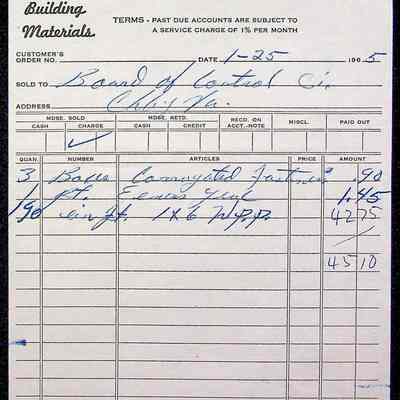 Building
Materials
TERMS • PAST DUE ACCOUNTS ARE SUBJECT TO
A SERVICE CHARGE OF 1% PER MONTH
CUSTOMER'S
ORDER NO. DATE 1-25 1965
SOLD TO Board of Control
ADDRESS Va.
MDSE. SOLD MDSE. RETD. RECD. ON ACCT.-NOTE MISCL. PAID OUT
CASH CHARGE CASH CREDIT
QUAN. NUMBER ARTICLES PRICE AMOUNT
3 Boxes Corrugated Fastners .90
1 pt. Glue 1.45
190 Lin ft. 1x6 W.P.P. 42 75
45 10